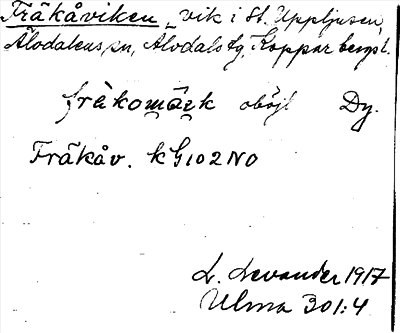 Fräkåviken, vik i St. Uppljusen,
Älvdalens sn, Älvdals tg, Kopparbergs l.
fräkomä̯ꞓk oböjl Dy.
Fräkåv. kG102NO
L. Levander 1917
Ulma 301:4